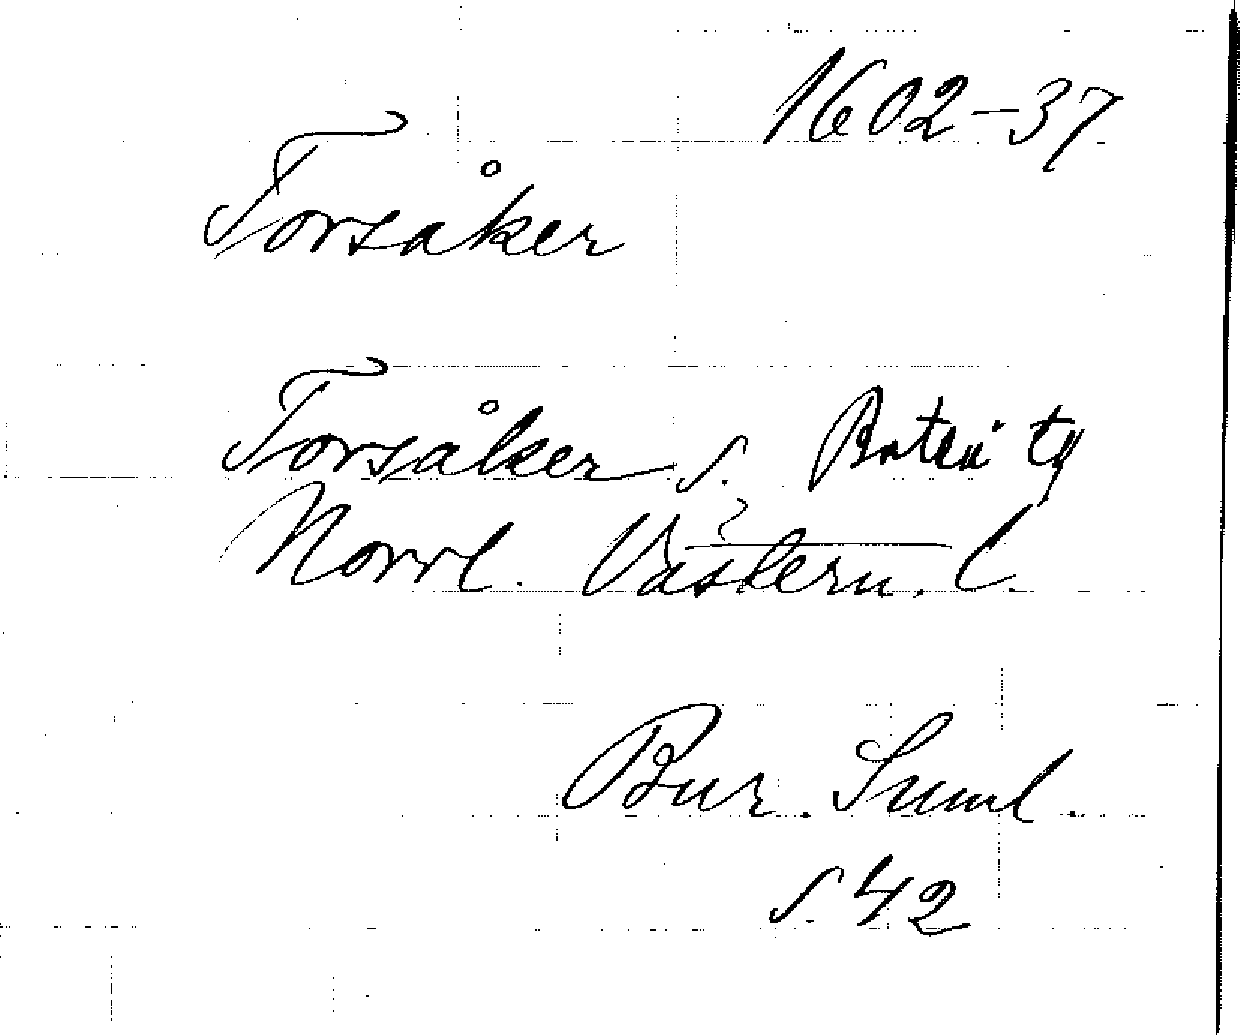 1602-37
Torsåker
Torsåker s. Boteå tg
Norrl. Västern. l.
Bur. Suml.
s. 42